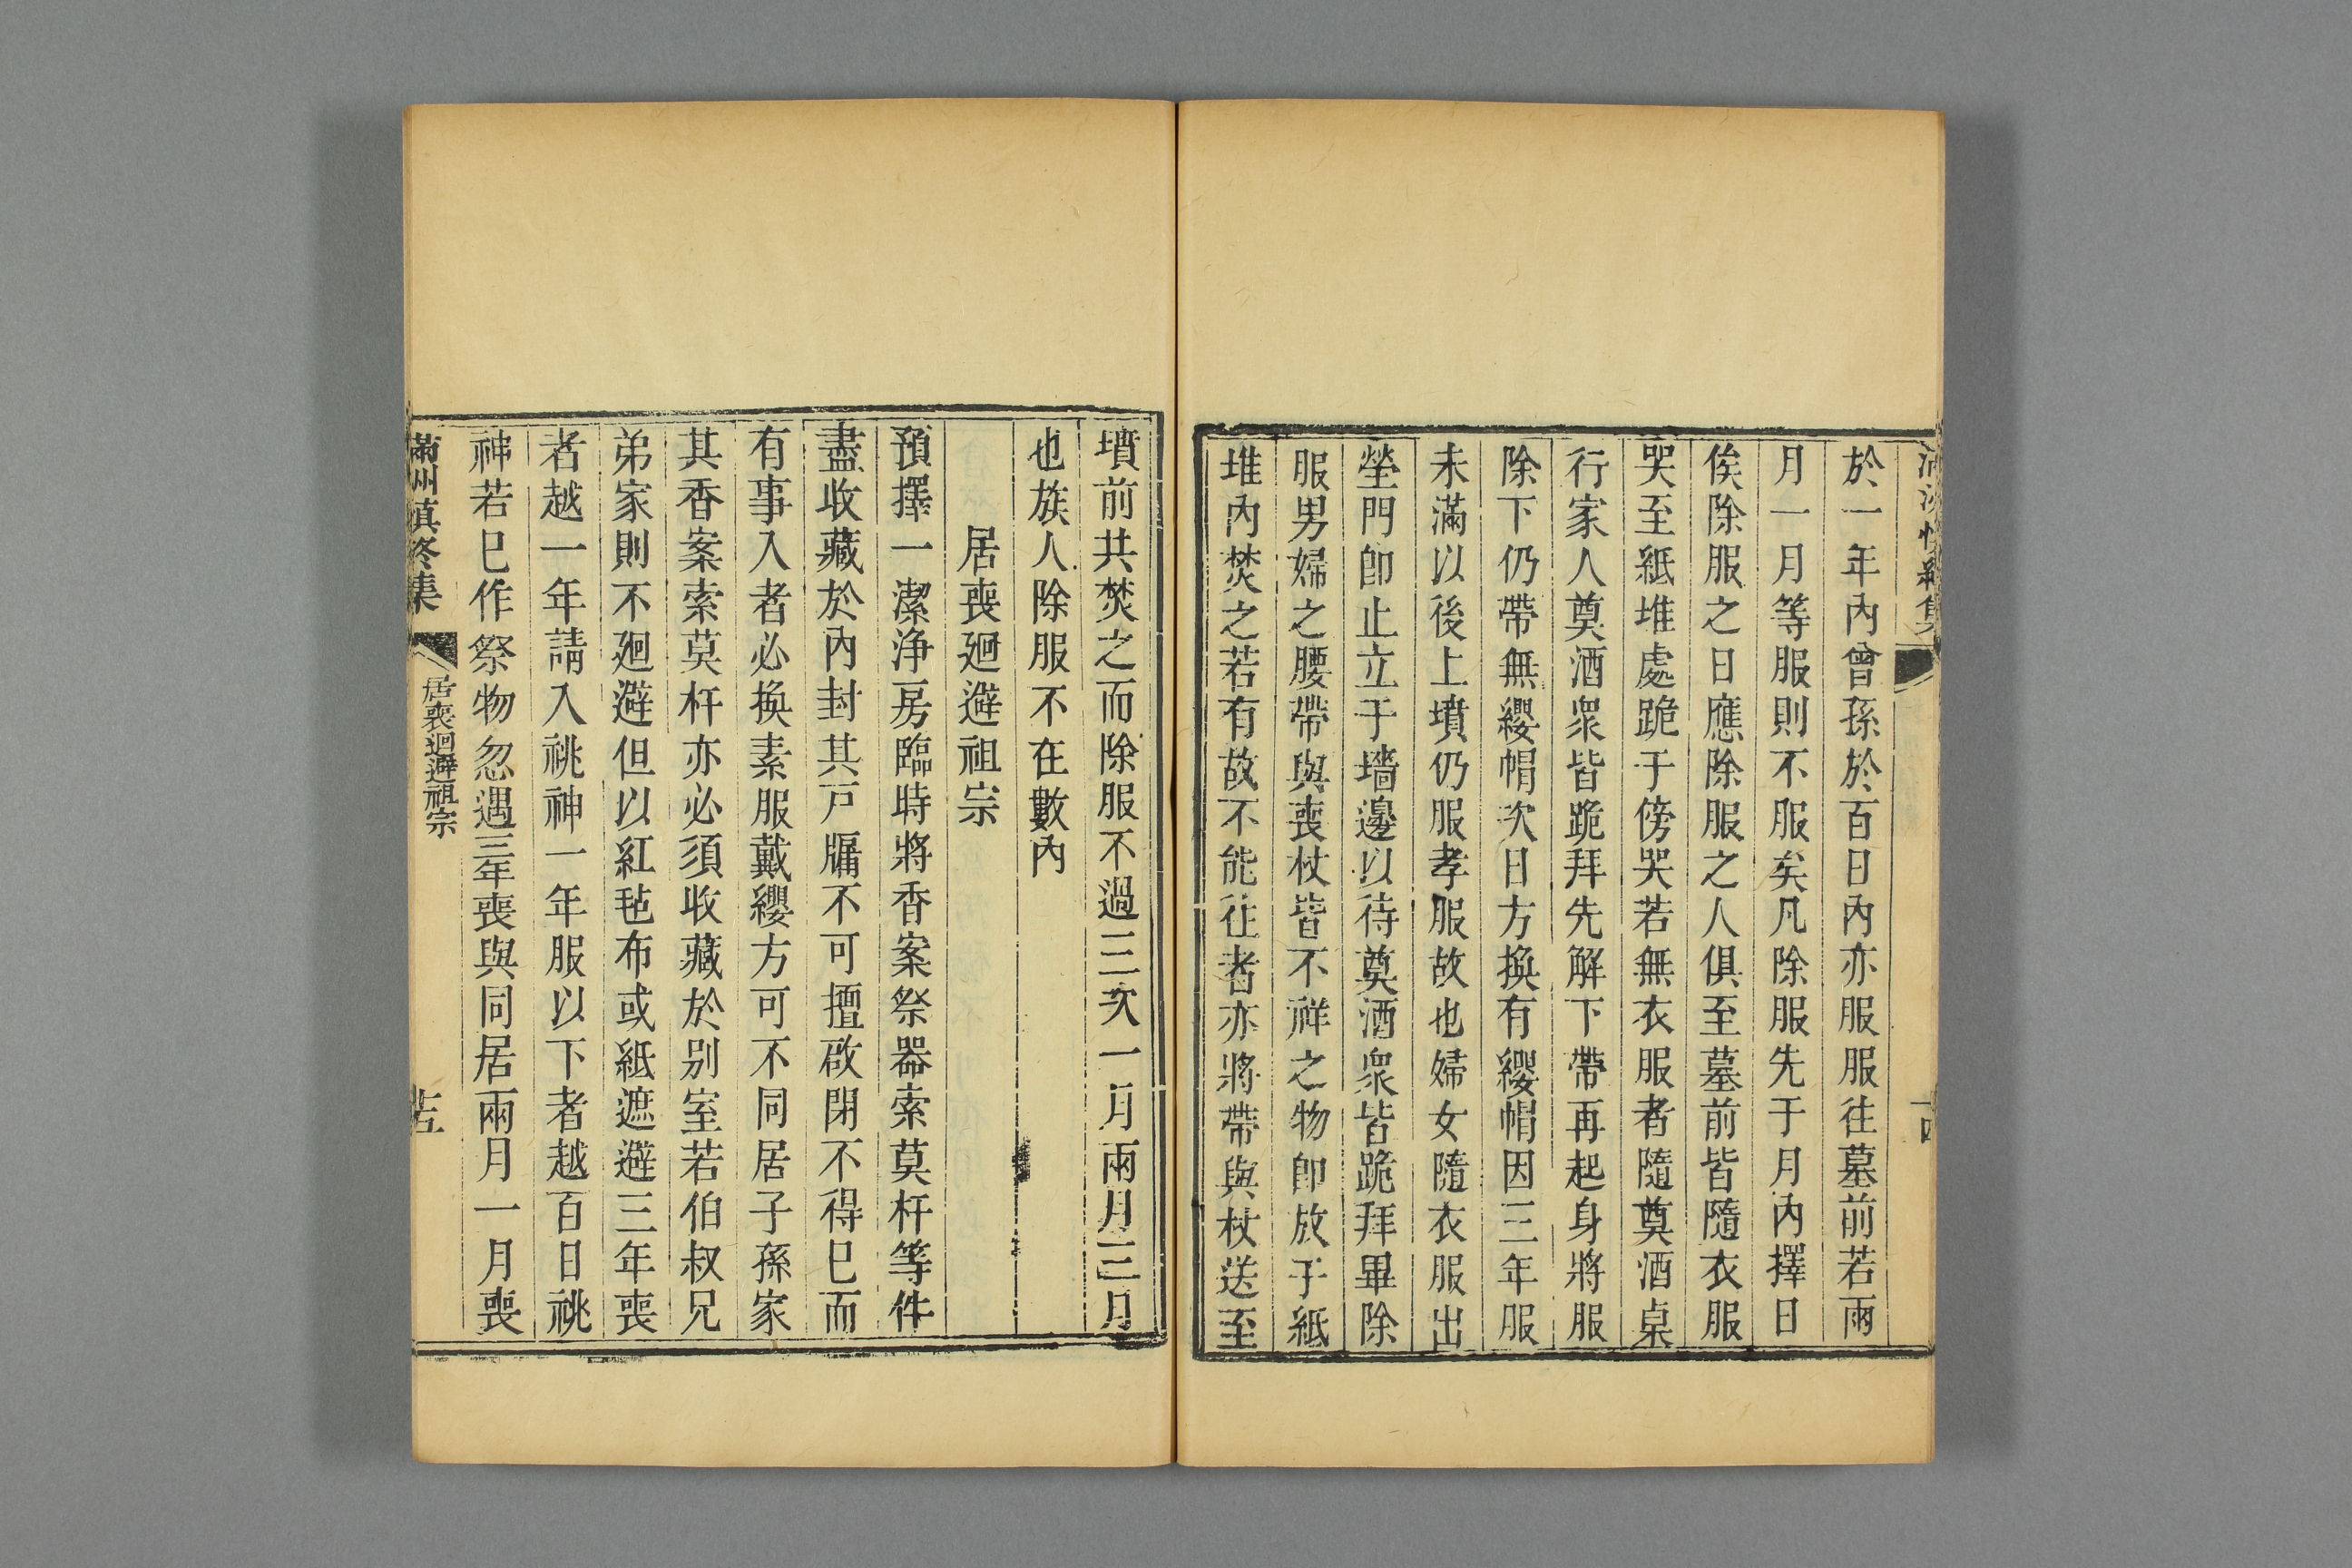 於一年內曾孫於百日內亦服服往墓前若兩
月一月等服則不服矣凡除服先于月內擇日
俟除服之日應除服之人俱至墓前皆隨衣服
哭至紙堆處跪于傍哭若無衣服者隨奠酒桌
行家人奠酒眾皆跪拜先解下帶再起身將服
除下仍帶無纓帽次日方換有纓帽因三年服
未滿以後上墳仍服孝服故也婦女隨衣服出
塋門卽止立于墻邊以待奠酒眾皆跪拜畢除
服男婦之腰帶與喪杖皆不祥之物卽放于紙
堆內焚之若有故不能往者亦將帶與杖送至
墳前共焚之而除服不過三次一月兩月三月
也族人除服不在數內
居喪廻避祖宗
預擇一潔净房臨時將香案祭器索莫杆等件
盡收藏於內封其戸牖不可擅啟閉不得已而
有事入者必換素服戴纓方可不同居子孫家
其香案索莫杆亦必須收藏於別室若伯叔兄
弟家則不廻避但以紅毡布或紙遮避三年喪
者越一年請入祧神一年服以下者越百日祧
神若已作祭物忽遇三年喪與同居兩月一月喪
滿州慎終集
居喪廻避祖宗